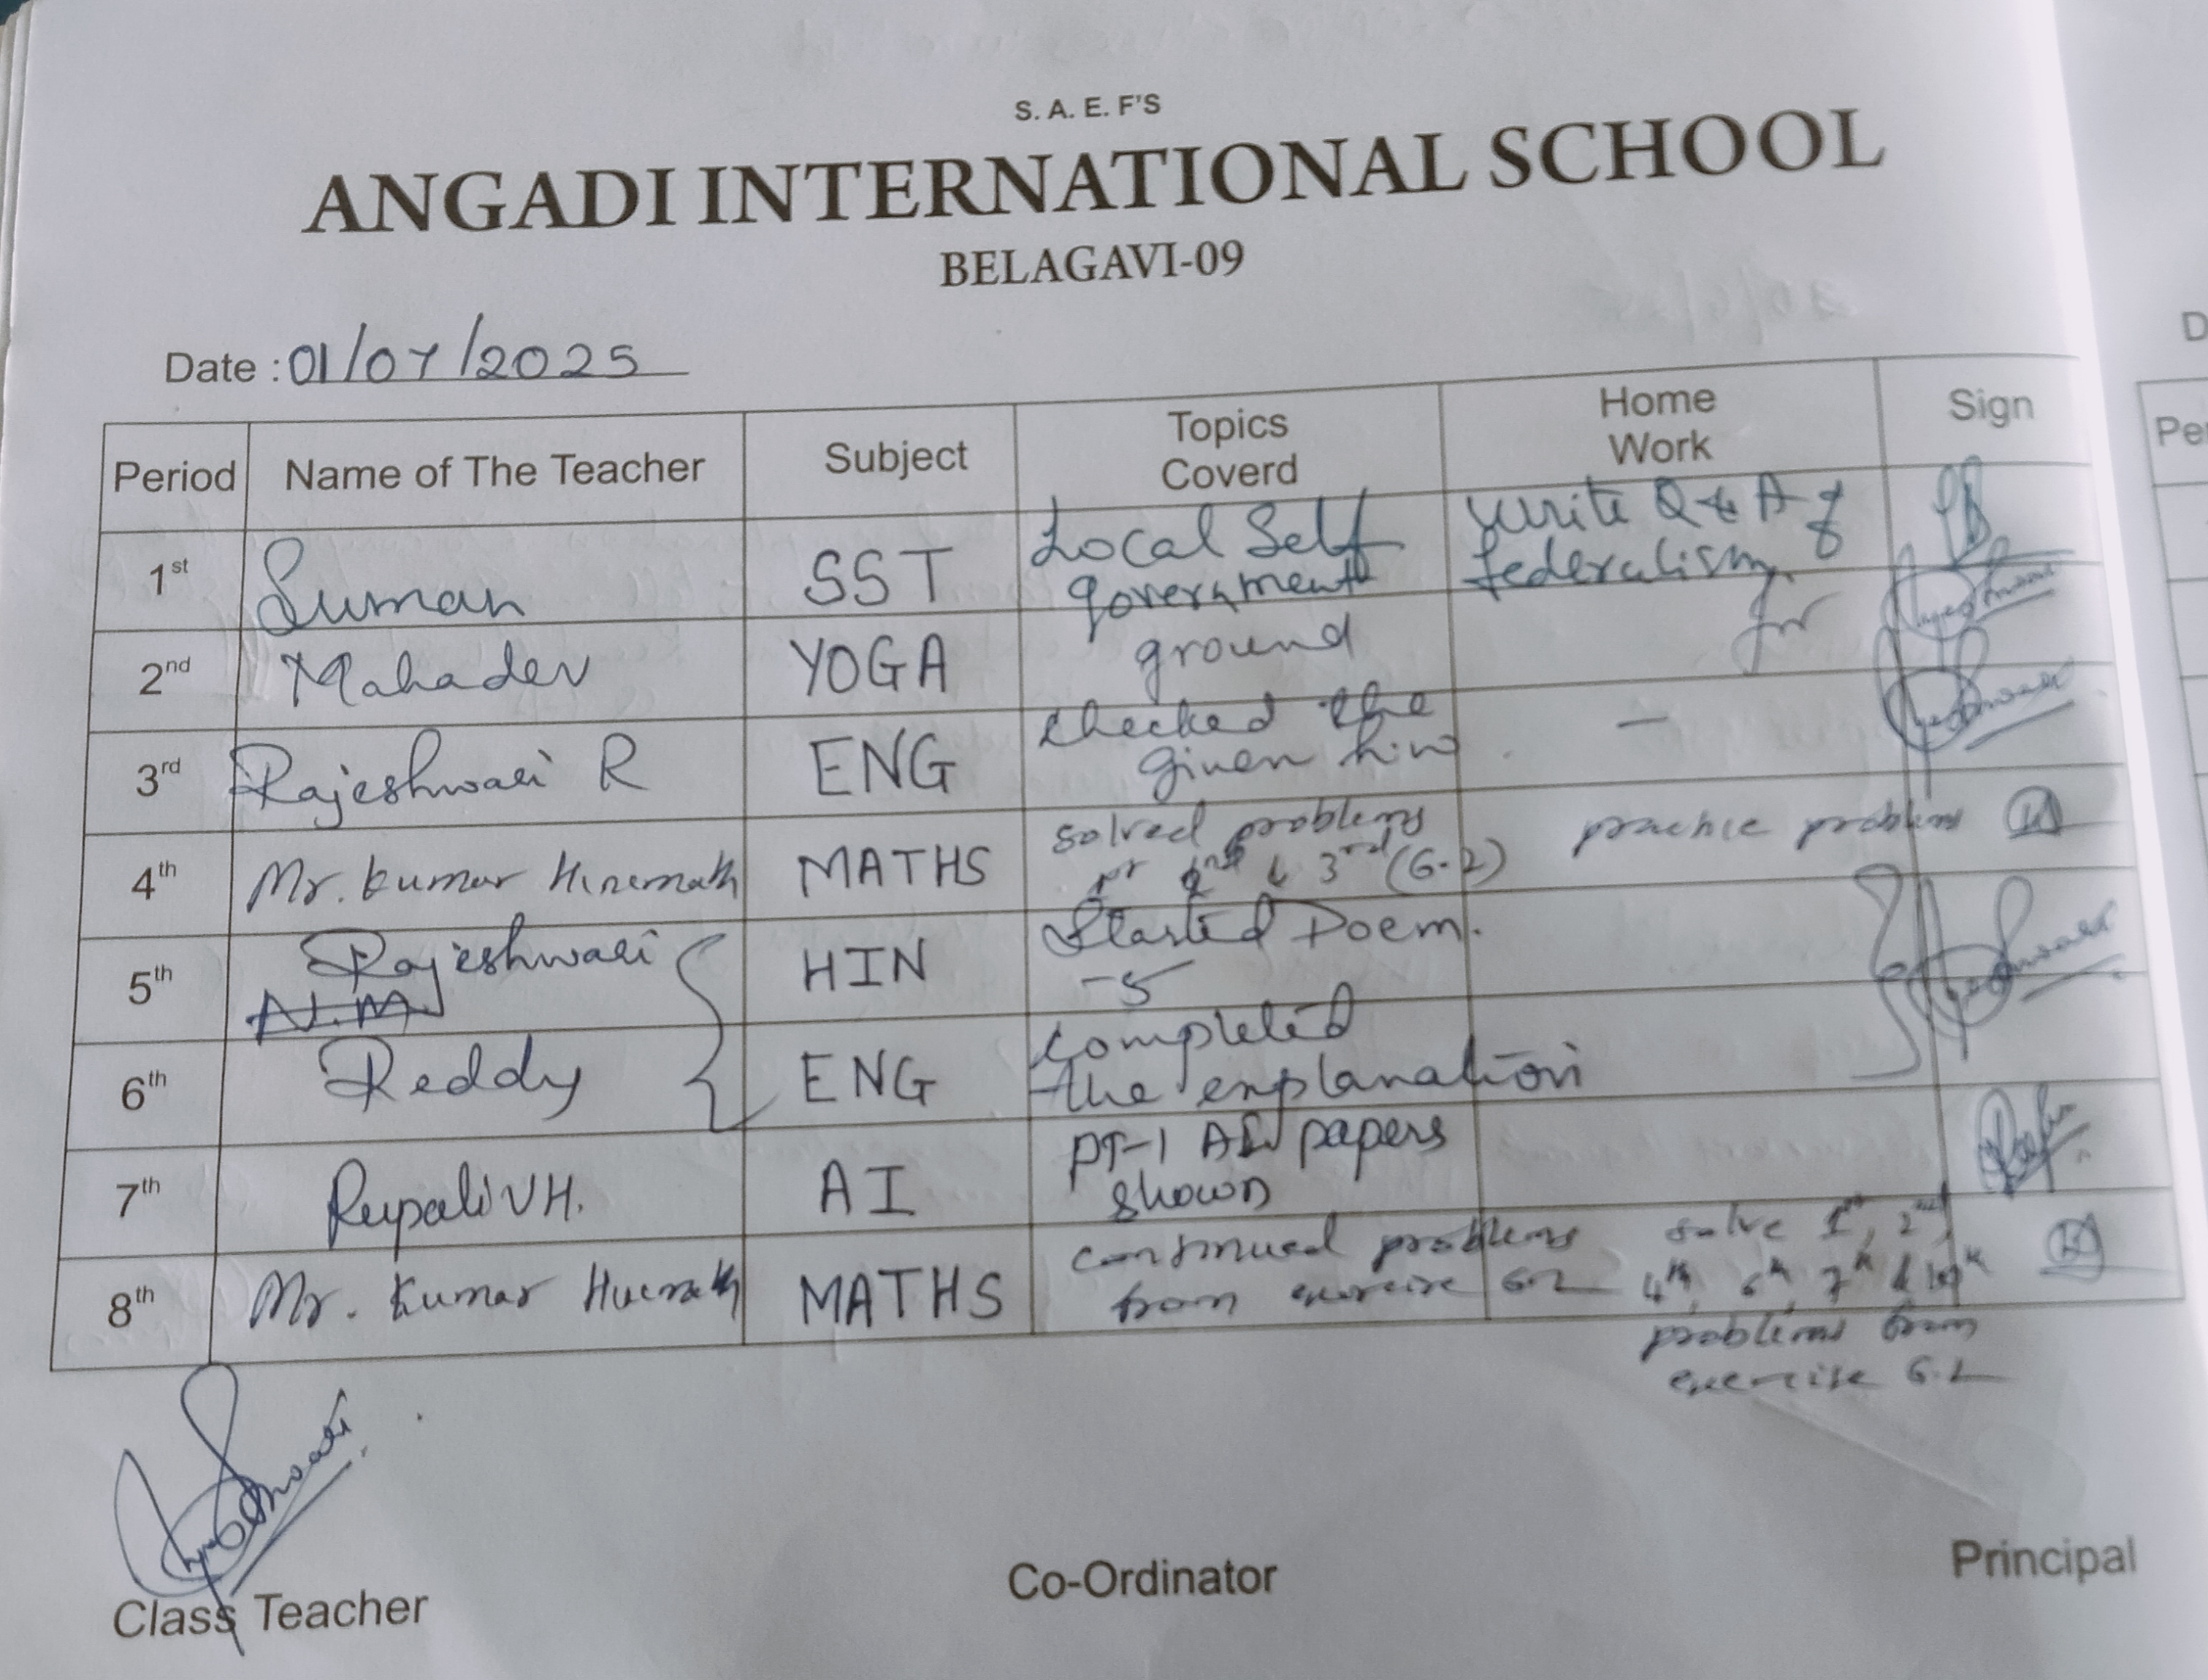 S. A. E. F'S
ANGADI INTERNATIONAL SCHOOL
BELAGAVI-09
Date : 01/07/2025
Period Name of The Teacher Subject Topics Coverd Home Work Sign
1st Suman SST Local Self government Write Q & A of federalism
2nd Mahadev YOGA ground for
3rd Rajeshwari R ENG checked the given h.w. —
4th Mr. Kumar Hiremath MATHS solved problems 2nd & 3rd (6.2) practice problems
5th Rajeshwari N.M. HIN Started Poem. -5
6th Reddy ENG completed the explanation
7th Rupali V H. AI PT-1 papers shown
8th Mr. Kumar Hiremath MATHS continued problems from exercise 6.2 solve 1st, 2nd, 4th, 6th, 7th & 10th
problems from
exercise 6.2
Class Teacher Co-Ordinator Principal
D
Per